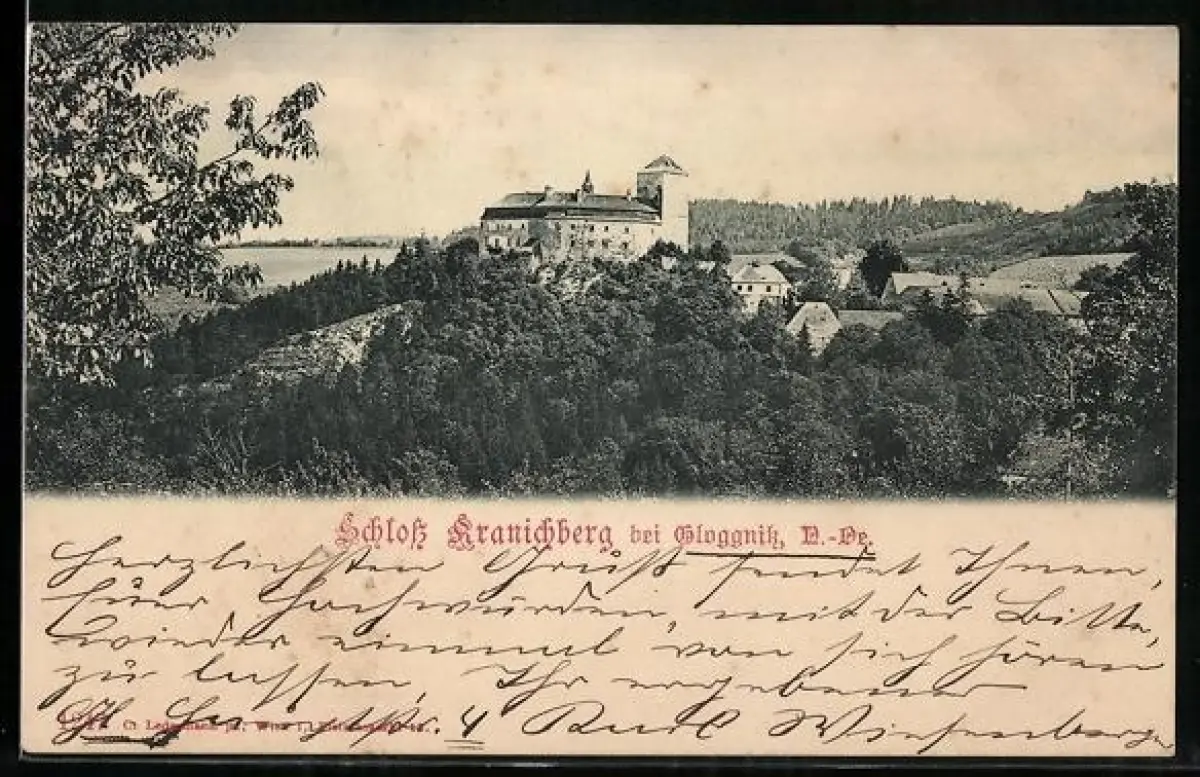 Schloß Kranichberg bei Gloggnitz, N.-Oe.
Herzlichsten Gruß sendet Ihnen,
Euer Hochwürden, mit der Bitte,
wieder einmal von sich hören
zu lassen, Ihr ergebener
4 Rud. Wiesenberger
C. Ledermann jr., Wien I.,